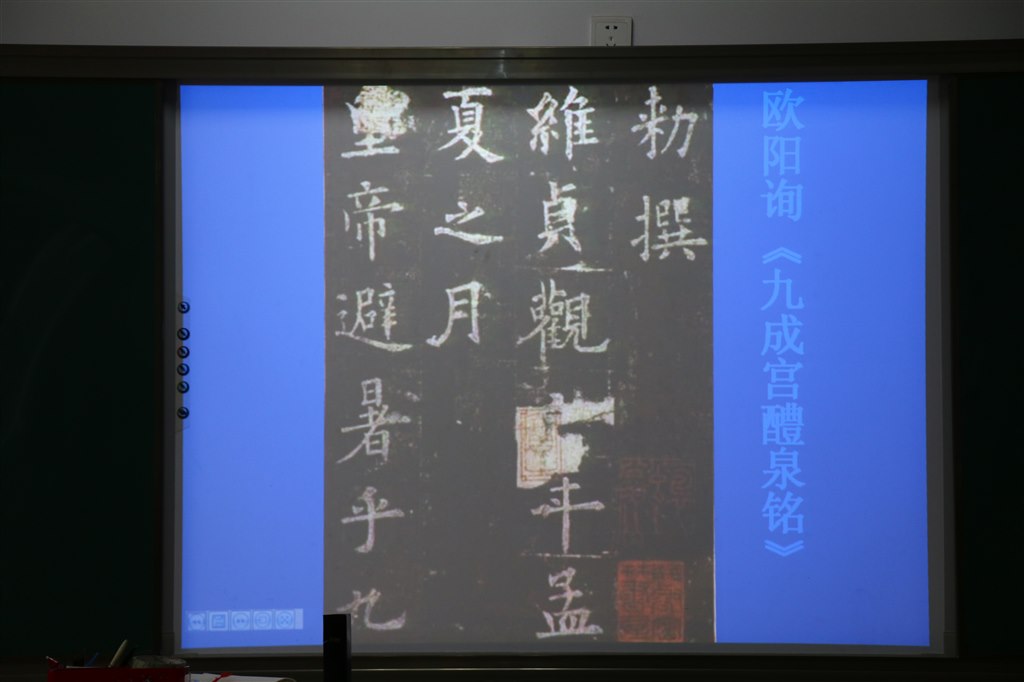 欧阳询《九成宫醴泉铭》
勑撰
維貞觀年孟
夏之月
皇帝避暑乎九